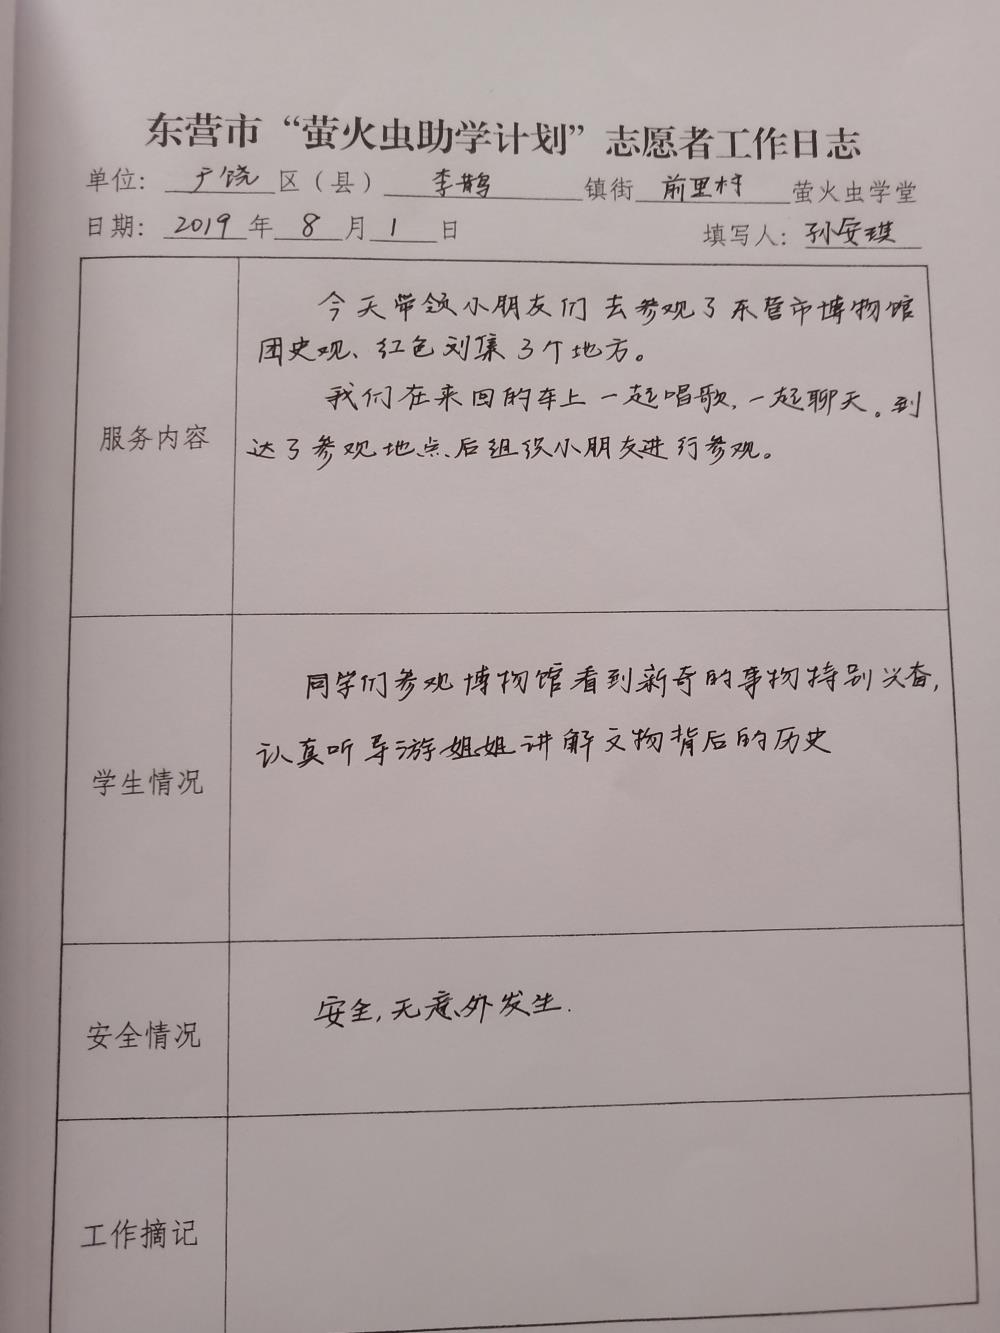 东营市“萤火虫助学计划”志愿者工作日志
单位：广饶区（县）李鹊镇街前里村萤火虫学堂
日期：2019年8月1日 填写人：孙安琪
服务内容
今天带领小朋友们去参观了东营市博物馆
团史观、红色刘集3个地方。
我们在来回的车上一起唱歌，一起聊天。到
达了参观地点后组织小朋友进行参观。
学生情况
同学们参观博物馆看到新奇的事物特别兴奋，
认真听导游姐姐讲解文物背后的历史
安全情况
安全，无意外发生.
工作摘记